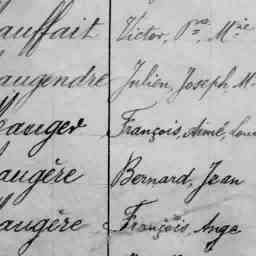 auffait Victor, Pre, Mie
augendre Julien, Joseph, M.
auger François, Aimé, Loui
augère Bernard, Jean
augère François, Ange